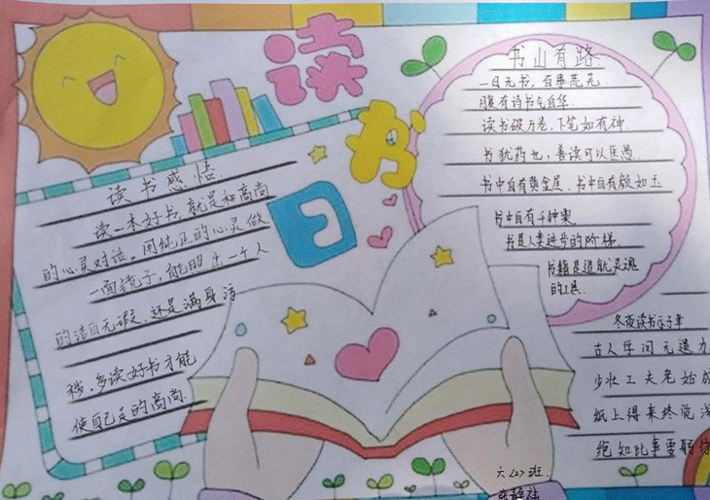 读书日
读书感悟
读一本好书,就是和高尚
的心灵对话。用纯正的心灵做
一面镜子,能照出一个人
的洁白无瑕,还是满身污
秽。多读好书才能
使自己走的高尚
书山有路
一日无书,百事荒芜.
腹有诗书气自华
读书破万卷,下笔如有神
书犹药也,善读可以医愚
书中自有黄金屋,书中自有颜如玉
书中自有千钟粟
书是人类进步的阶梯
书籍是造就灵魂
的工具.
冬夜读书示子聿
古人学问无遗力
少壮工夫老始成
纸上得来终觉浅
绝知此事要躬
六(2)班